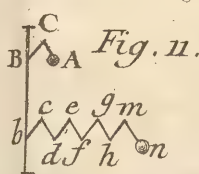 C
B A Fig. 11.
c e g m
b d f h n